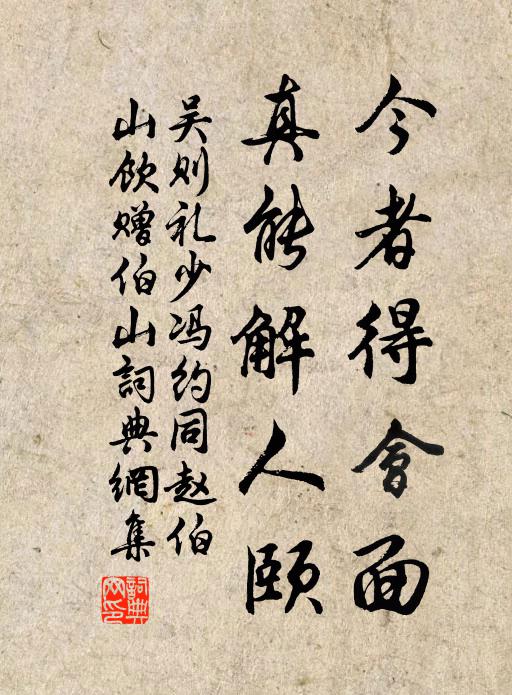 今者得會面
真能解人頤
吴则礼少冯约同赵伯
山饮赠伯山詞典網集
詞典網印